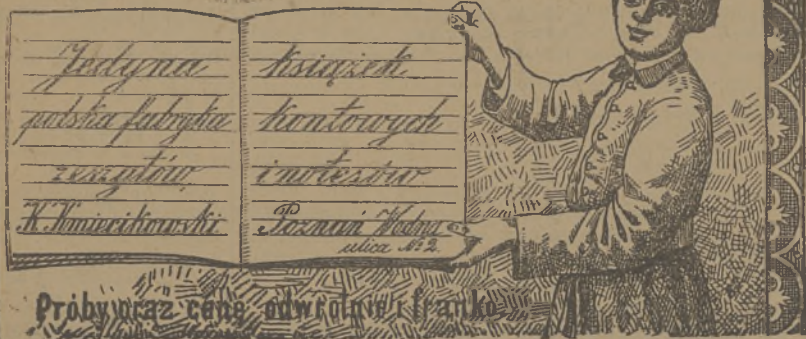 Jedyna
polska fabryka
zeszytów,
K. Kmiecikowski
książek
kontowych
i notesów
Poznań Wodna
ulica № 2.
Próby oraz cenę odwrotnie i franko.